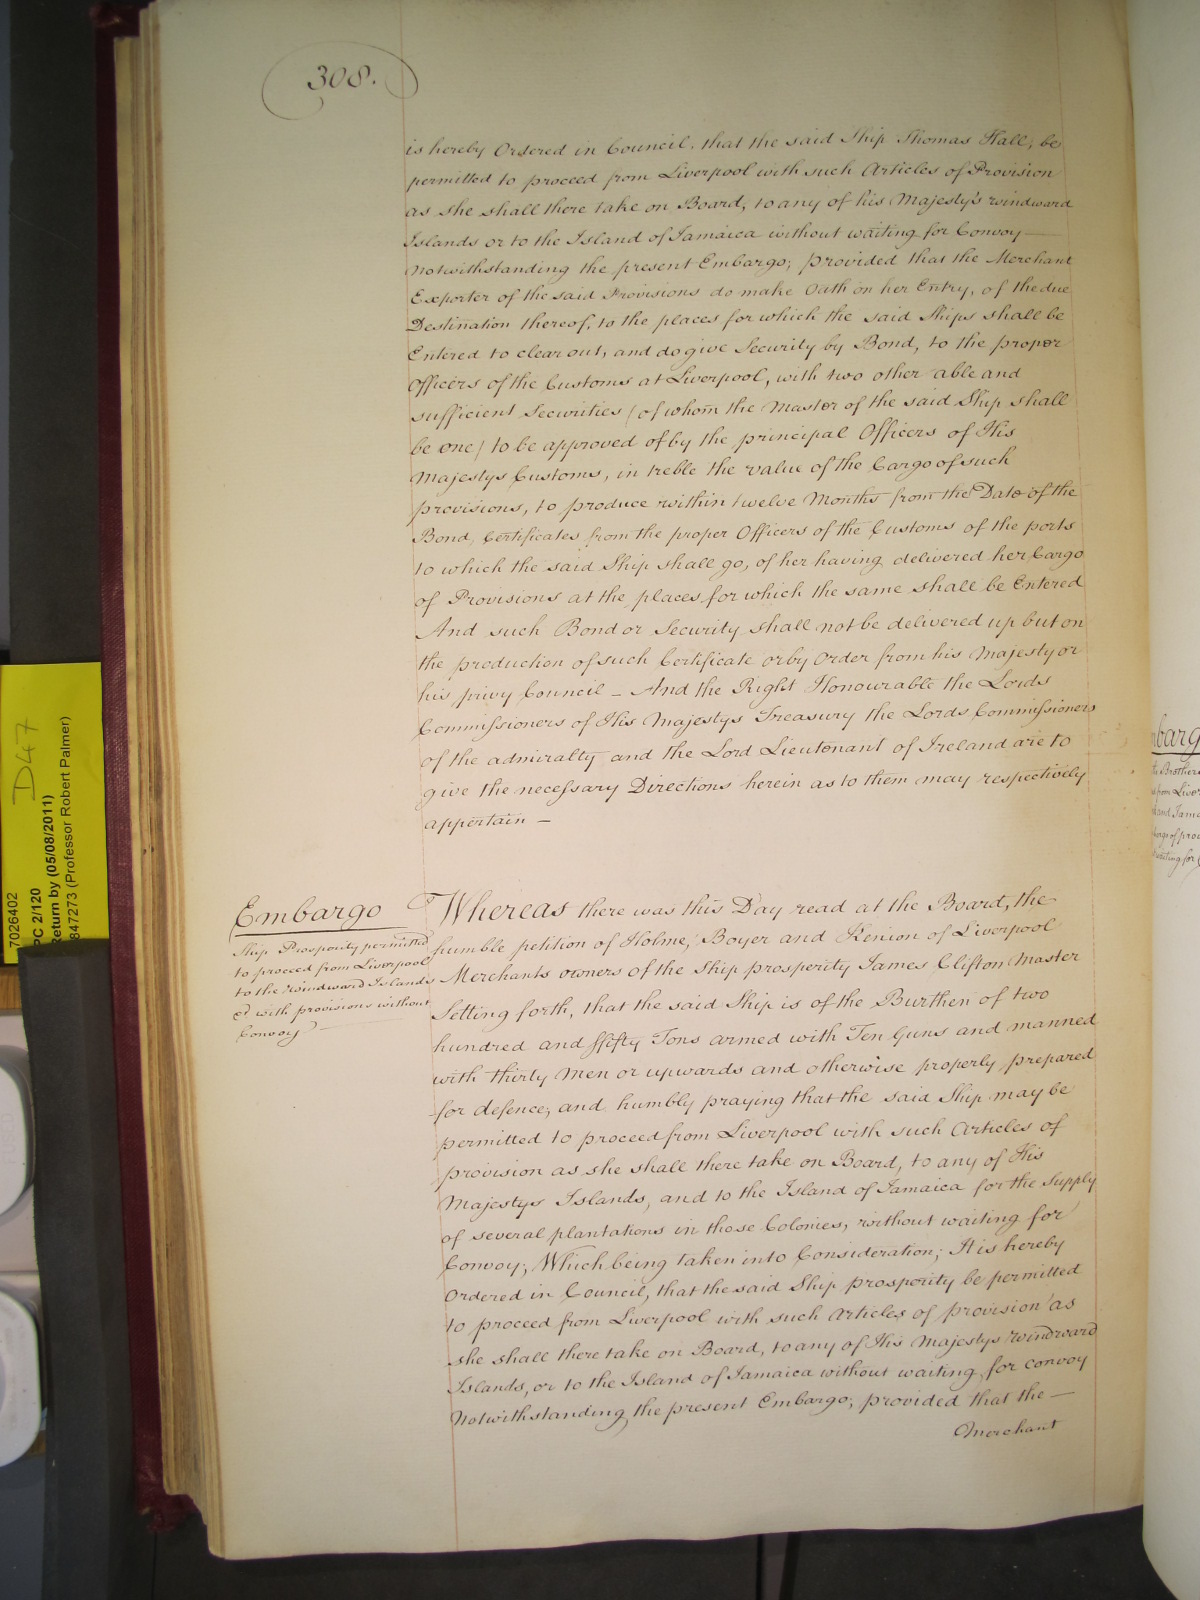 308.
is hereby Ordered in Council, that the said Ship Thomas Hall, be
permitted to proceed from Liverpool with such Articles of Provision
as she shall there take on Board, to any of his Majesty's windward
Islands or to the Island of Jamaica without waiting for Convoy —
notwithstanding the present Embargo; provided that the Merchant
Exporter of the said Provisions do make Oath on her Entry, of the due
Destination thereof, to the places for which the said Ships shall be
Entered to clear out, and do give Security by Bond, to the proper
Officers of the Customs at Liverpool, with two other able and
sufficient Securities (of whom the Master of the said Ship shall
be one) to be approved of by the principal Officers of His
Majestys Customs, in treble the value of the Cargo of such
provisions, to produce within twelve Months from the Date of the
Bond, Certificates from the proper Officers of the Customs of the ports
to which the said Ship shall go, of her having delivered her Cargo
of Provisions at the places for which the same shall be Entered
And such Bond or Security shall not be delivered up but on
the production of such Certificate or by Order from his Majesty or
his privy Council – And the Right Honourable the Lords
Commissioners of His Majestys Treasury the Lords Commissioners
of the admiralty and the Lord Lieutenant of Ireland are to
give the necessary Directions herein as to them may respectively
appertain –
Embargo
Ship Prosperity permitted
to proceed from Liverpool
to the windward Islands
&c with provisions without
Convoy
Whereas there was this Day read at the Board, the
humble petition of Holme, Boyer and Kenion of Liverpool
Merchants owners of the Ship prosperity James Clifton Master
Setting forth, that the said Ship is of the Burthen of two
hundred and ffifty Tons armed with Ten Guns and manned
with thirty Men or upwards and otherwise properly prepared
for defence; and humbly praying that the said Ship may be
permitted to proceed from Liverpool with such Articles of
provision as she shall there take on Board, to any of His
Majestys Islands, and to the Island of Jamaica for the Supply
of several plantations in those Colonies, without waiting for
Convoy; Which being taken into Consideration; It is hereby
Ordered in Council, that the said Ship prosperity be permitted
to proceed from Liverpool with such Articles of provision as
she shall there take on Board, to any of His Majestys windward
Islands, or to the Island of Jamaica without waiting for convoy
Notwithstanding the present Embargo; provided that the —
Merchant
D47
7026402
PC 2/120
Return by (05/08/2011)
847273 (Professor Robert Palmer)